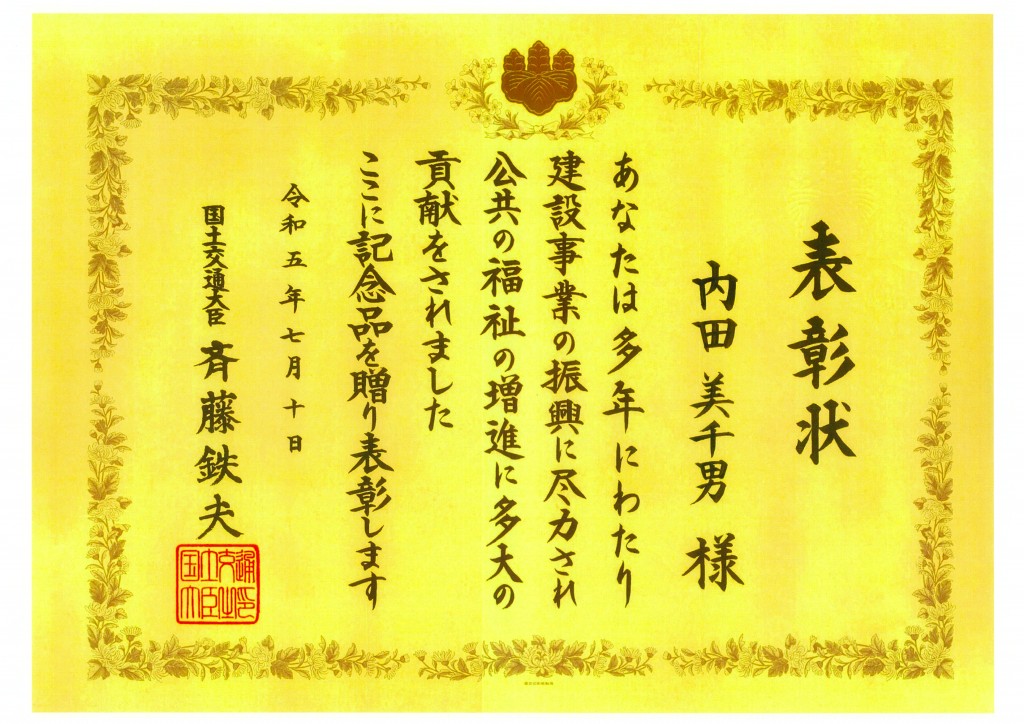 表彰状
内田 美千男 様
あなたは多年にわたり
建設事業の振興に尽力され
公共の福祉の増進に多大の
貢献をされました
ここに記念品を贈り表彰します
令和五年七月十日
国土交通大臣 斉藤鉄夫
国土交通大臣之印